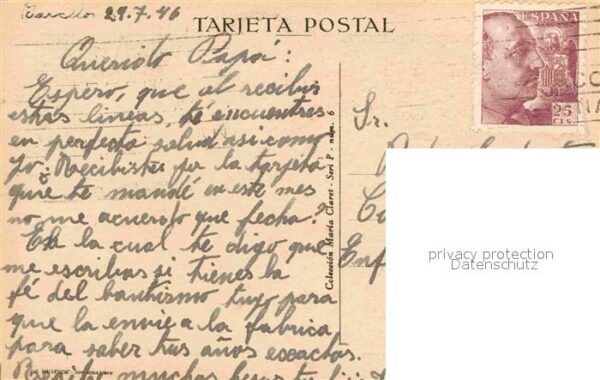 Barcelo 29.7.46
TARJETA POSTAL
ESPAÑA
CORREOS
25
CTS
Querioto Papá:
Espero, que al recibir
estas lineas, te encuentres
en perfecta salud asi como
yo. ¿Recibiste pa la tarjeta
que te mandé en este mes
no me acuerdo que fecha?
En la cual te digo que
me escribas si tienes la
fé del bautismo tuyo para
que la envie a la fabrica
para saber tus años esactos.
Recibe muchos besos tu
Sr.
Colección María Claret - Seri P - núm. 6
privacy protection
Datenschutz